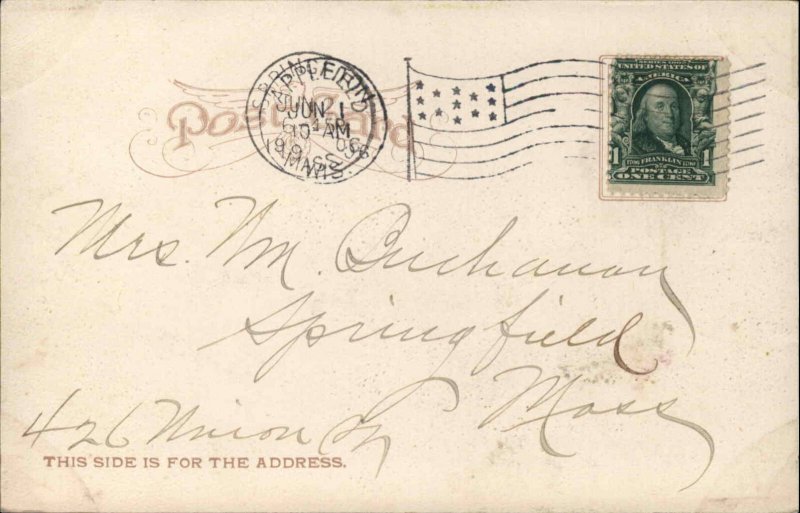 Post Card
SERIES 1902
UNITED STATES OF
AMERICA
1 FRANKLIN 1
POSTAGE
ONE CENT
SPRINGFIELD
JUN 1
10 AM
MASS.
Mrs. Wm. Buchanan
Springfield
Mass
426 Union St
THIS SIDE IS FOR THE ADDRESS.